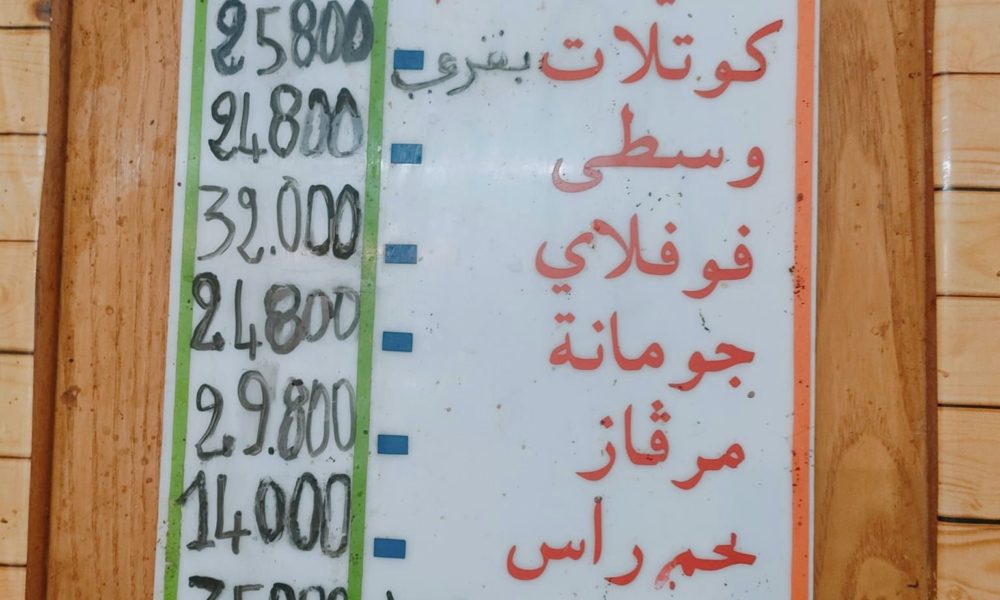 كوتلات بقري 25800
وسطى 24800
فوفلاي 32.000
جومانة 24800
مرڤاز 29.800
لحم راس 14000